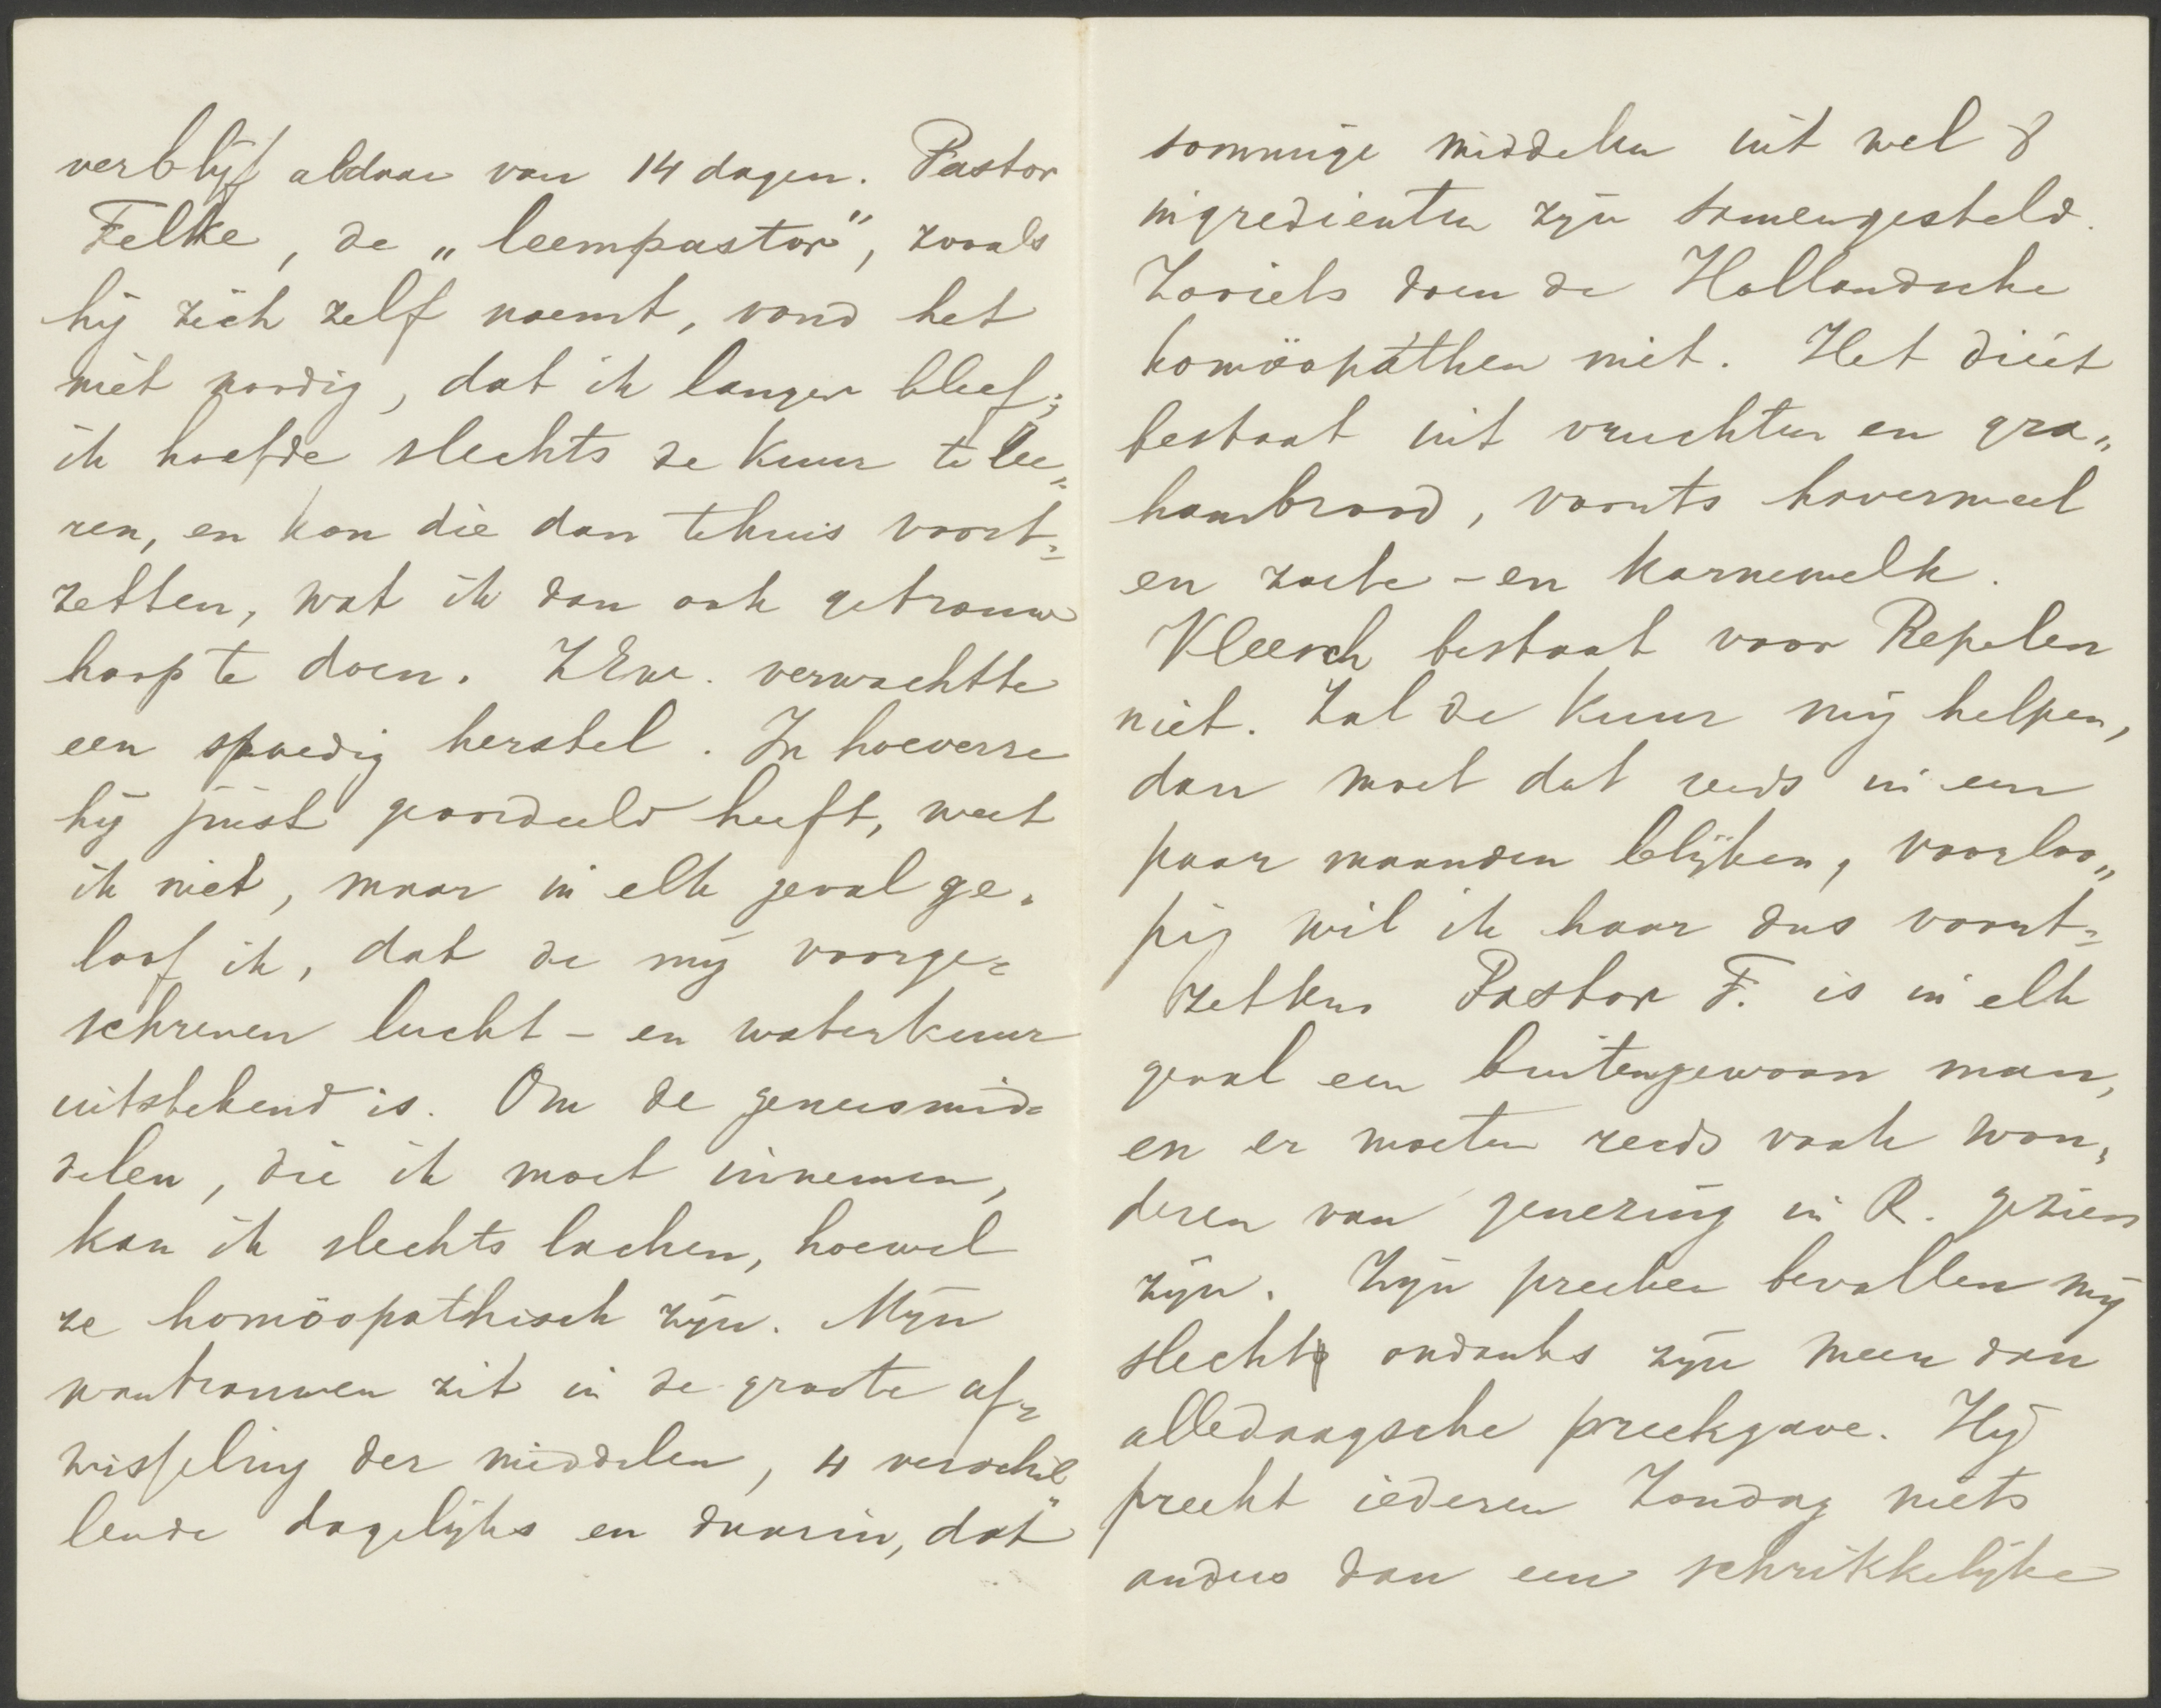 verblijf aldaar van 14 dagen. Pastor
Felke, de „leempastor", zooals
hij zich zelf noemt, vond het
niet noodig, dat ik langer bleef;
ik hoefde slechts de kuur te lee„
ren, en kon die dan tehuis voort=
zetten, wat ik dan ook getrouw
hoop te doen. ZEw. verwachtte
een spoedig herstel. In hoeverre
hij juist geoordeeld heeft, weet
ik niet, maar in elk geval ge„
loof ik, dat de mij voorge=
schreven lucht- en waterkuur
uitstekend is. Om de geneesmid=
delen, die ik moet innemen,
kan ik slechts lachen, hoewel
ze homöopathisch zijn. Mijn
wantrouwen zit in de groote af=
wisseling der middelen, 4 verschil„
lende dagelijks en daarin, dat
sommige middelen uit wel 8
ingredienten zijn samengesteld.
Zooiets doen de Hollandsche
homöopathen niet. Het diëet
bestaat uit vruchten en gra„
hambrood, voorts havermeel
en zoete- en karnemelk.
Vleesch bestaat voor Repelen
niet. Zal de kuur mij helpen,
dan moet dat reeds in een
paar maanden blijken, voorloo„
pig wil ik haar dus voort=
zetten. Pastor F. is in elk
geval een buitengewoon man,
en er moeten reeds vaak won„
deren van genezing in R. gezien
zijn. Zijn preeken bevallen mij
slecht ondanks zijn meer dan
alledaagsche preekgave. Hij
preekt iederen Zondag niets
anders dan een schrikkelijke